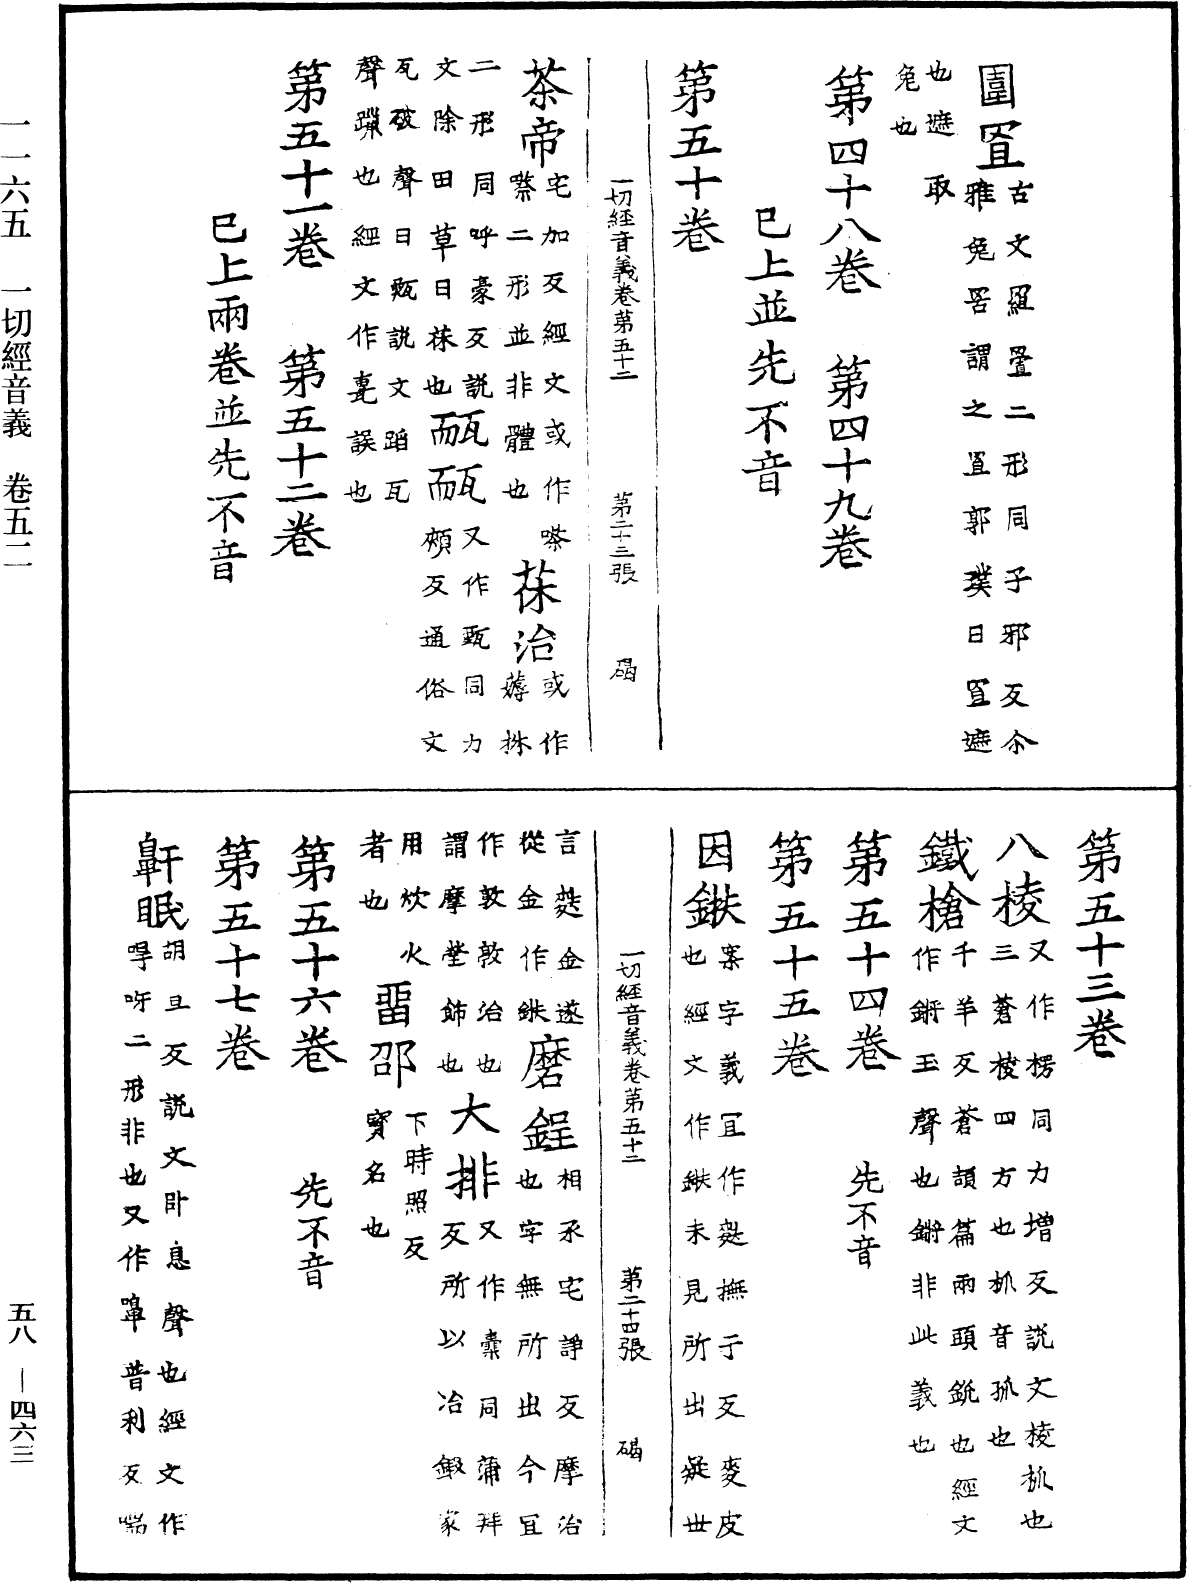 圍罝古文罹罿二形同子邪反尒
雅兔罟謂之罝郭璞曰罝遮
也遮取
兔也
第四十八卷 第四十九卷
已上並先不音
第五十卷
一切經音義卷第五十二 第二十三張 碣
茶帝宅加反經文或作嗏
㗫二形並非體也 茠治或作
薅 株
二形同呼豪反說
文除田草曰茠也 𤬦𤬦又作甄同力
頰反通俗文
瓦破聲曰甄說文蹈瓦
聲躐也經文作𤰇誤也
第五十一卷 第五十二卷
已上兩卷並先不音
第五十三卷
八棱又作楞同力增反說文棱柧也
三蒼棱四方也柧音孤也
鐵槍千羊反蒼頡篇兩頭銳也經文
作鏘玉聲也鏘非此義也
第五十四卷 先不音
第五十五卷
因鈇案字義冝作䴸撫于反麥皮
也經文作鈇未見所出疑世
一切經音義卷第五十二 第二十四張 碣
言䴸金遂
從金作鈇 磨鋥相承宅諍反摩治
也字無所出今冝
作敦敦治也
謂摩瑩飾也 大排又作橐同蒲拜
反所以冶鍛家
用炊火
者也 䨓邵下時照反
寳名也
第五十六卷 先不音
第五十七卷
鼾眠胡旦反說文卧息聲也經文作
嘷呀二形非也又作嚊普利反喘
一一六五 一切經音義 卷五二
五八—四六三